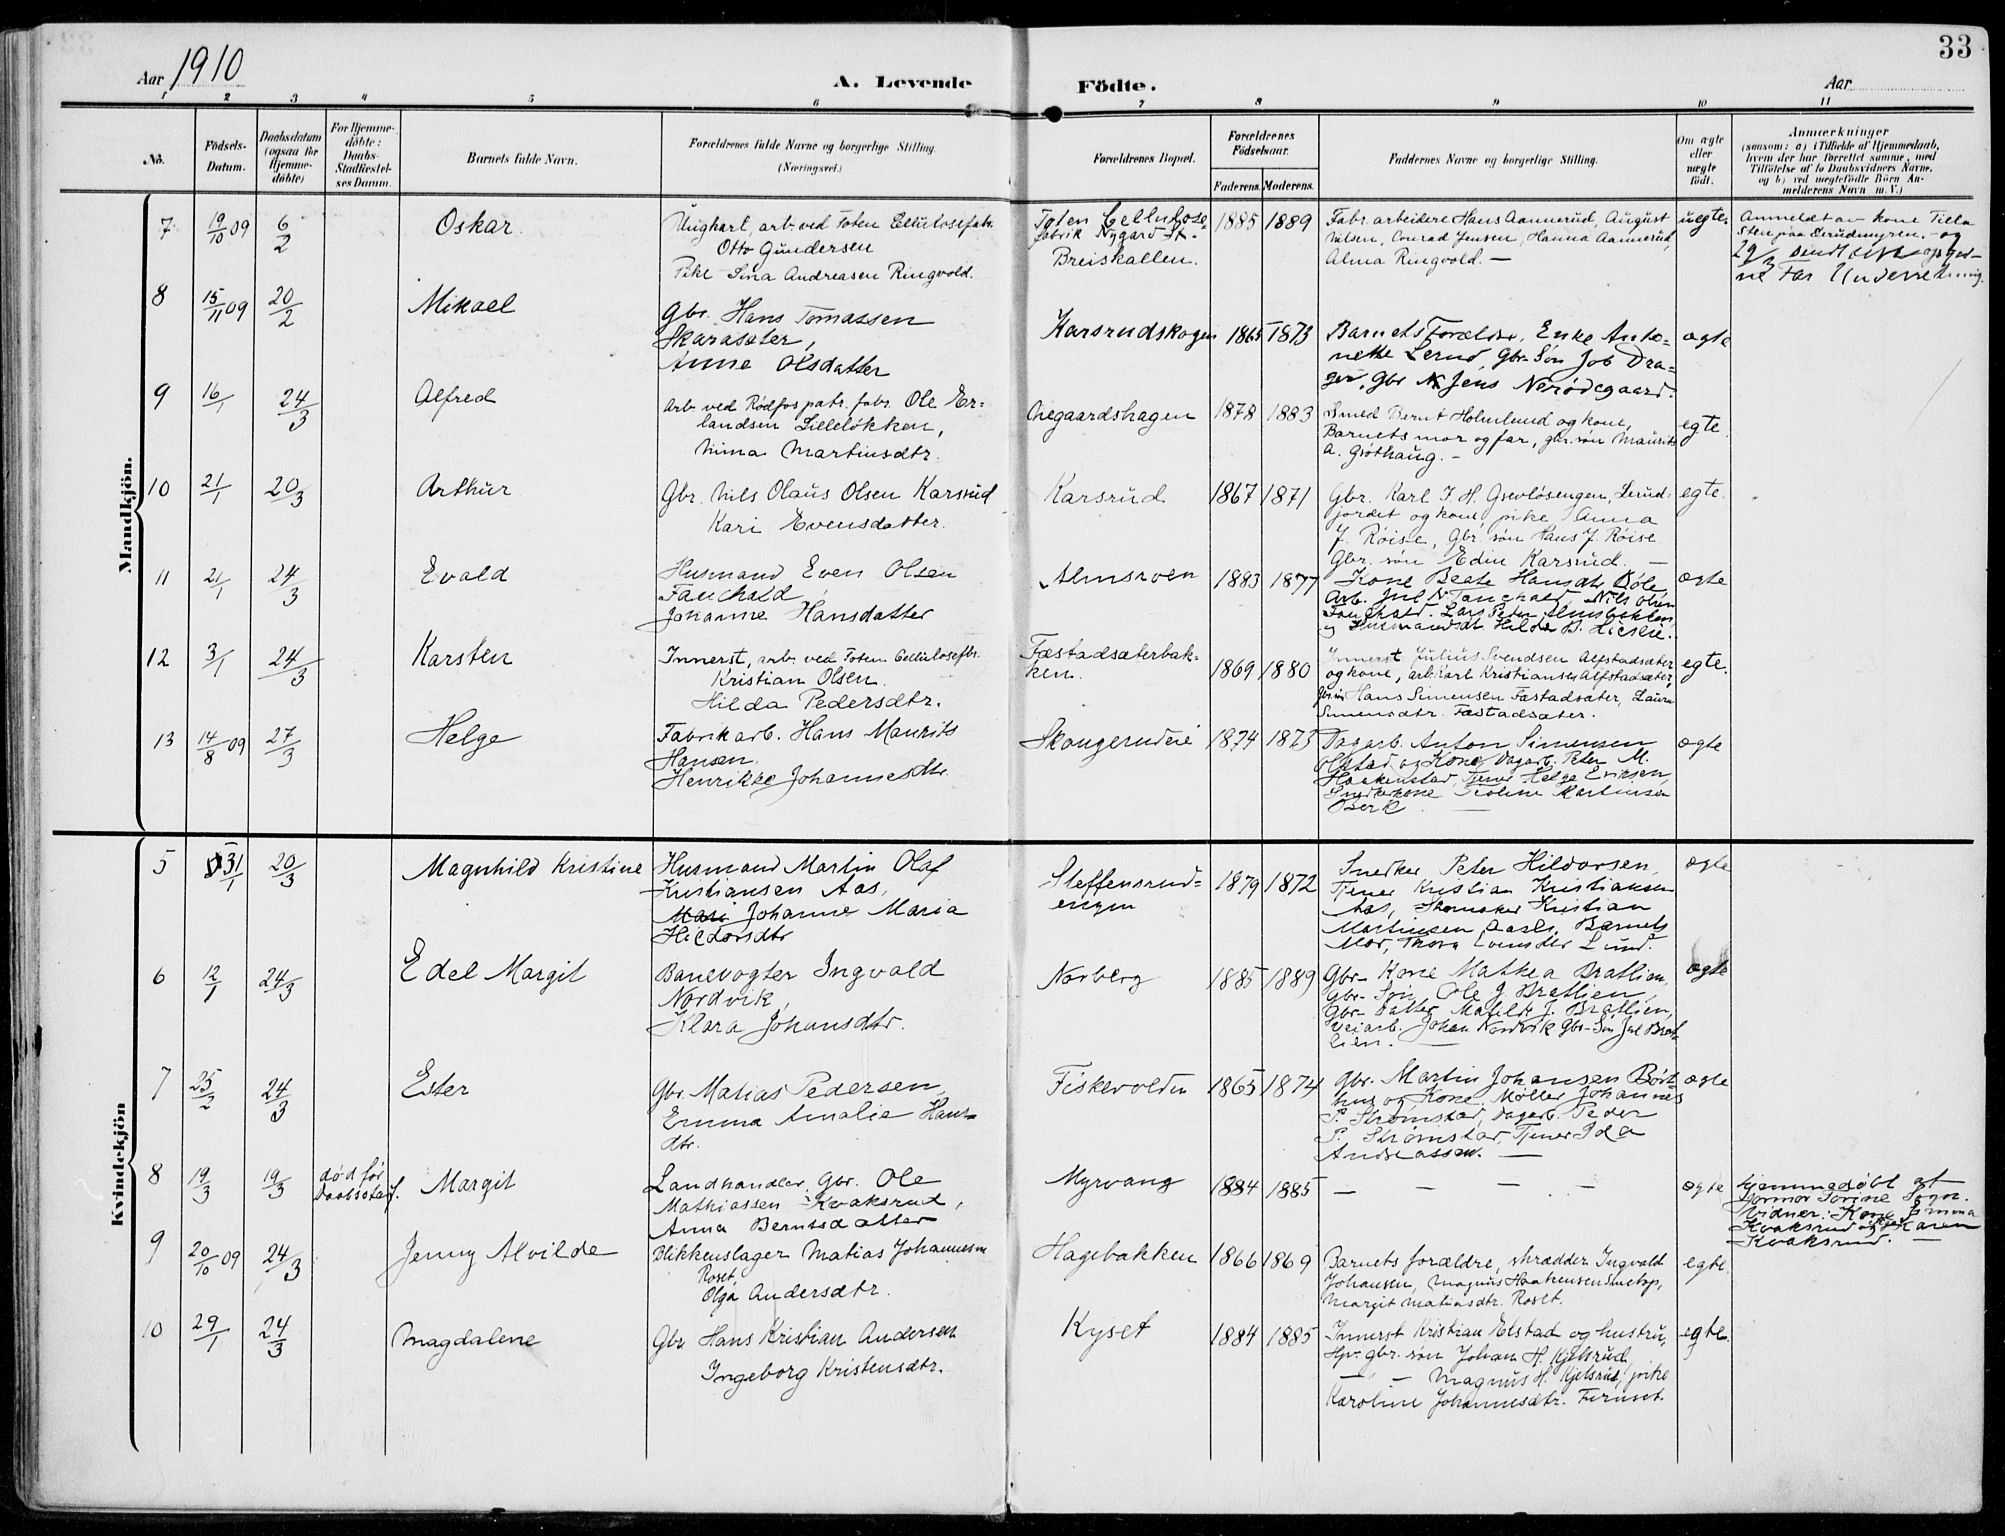 33
Aar 1910
A. Levende Födte.
Aar
1 2 3 4 5 6 7 8 9 10 11
No.
Födsels-
Datum.
Daabsdatum
(ogsaa for
Hjemme-
döbte)
For Hjemme-
döbte:
Daabs-
Stadfæstel-
ses Datum.
Barnets fulde Navn.
Forældrenes fulde Navne og borgerlige Stilling.
(Næringsvei.)
Forældrenes Bopæl.
Forældrenes
Födselsaar.
Faderens. Moderens.
Faddernes Navne og borgerlige Stilling.
Om ægte
eller
uægte
födt.
Anmærkninger
(saasom: a) i Tilfælde af Hjemmedaab,
hvem der har forrettet samme, med
Tilföielse af to Daabsvidners Navne,
og b) ved uægtefödte Börn An-
melderens Navn m. V.)
Mandkjön.
7 19/10 09 6/2 Oskar.
Ungkarl, arb. ved Toten Cellulosefabr.
Otto Gundersen
Pike Sina Andreasen Ringvold.
Toten Cellulose
fabrik Nygard St.
Breiskallen.
1885 1889
Fabr. arbeidere Hans Aannerud, August
Nilsen, Conrad Jensen, Hanna Aannerud,
Alma Ringvold. —
uegte.
Anmeldt av kone Tilla
Sten paa Lerudmyren. - og
29/3 sendt
Under
8 15/11 09 20/2 Mikael
Gbr. Hans Tomassen
Skarasæter,
Anne Olsdatter
Karsrudskogen 1865 1873
Barnets Forældre, Enke Anto-
nette Lerud, Gbr. Søn Job Dra-
ger, Gbr Jens Nerødegaard.
ægte
9 16/1 24/3 Alfred
Arb. ved Rødfos patr. fabr. Ole Er-
landsen Lilleløkken,
Nima Martinsdtr.
1878 1883
Smed Bernt Holmlund og kone,
Barnets mor og far, gbr. søn Maurits
A. Grøthaug. -
egte.
10 21/1 20/3 Arthur
Gbr. Nils Olaus Olsen Karsrud
Kari Evensdatter.
Karsrud 1867 1871
Gbr. Karl F. H. Grevløsengen, Lerud-
jordet og kone, pike Anna
J. Røise, Gbr. søn Hans J. Røise
Gbr. søn Edin Karsrud. —
egte.
11 21/1 24/3 Evald
Husmand Even Olsen
Fauchald,
Johanne Hansdatter
Almsroen 1883 1877
Kone Beate Hansdtr Bøle,
Arb. Jul. N Fauchald, Nils Olsen
Fauchald. Lars Peder
og Husmandsdt Hilda B.
ægte
12 3/1 24/3 Karsten
Innerst, arb. ved Toten Cellulosefbr.
Kristian Olsen.
Hilda Pedersdtr.
Fæstadsæterbak-
ken. 1869 1880
Innerst Julius Svendsen Alfstadsæter
og kone, arb. Karl Kristiansen Alfstadsæter,
Hans Simensen Fæstadsæter, Laura
Simensdtr. Fæstadsæter.
egte.
13 14/8 09 27/3 Helge
Fabrikarb. Hans Maurits
Hansen.
Henrikke Johannesdtr.
Skougerudeie 1874 1873
Dagarb. Anton Simensen
Olstad og Kone, Dagarb. Peter M.
Haakenstad, Tjener Helge Eriksen,
Snedkerkone Tioline Martinsen
ægte
Kvindekjön
5 31/1 20/3 Magnhild Kristine
Husmand Martin Olaf
Kristiansen Aas,
Johanne Maria
Hildorsdtr
Steffensrud-
engen 1879 1872
Snedker Peter Hildorsen,
Tjener Kristian Kristiansen
Aas, Skomaker Kristian
Martinsen Aasli, Barnets
Mor, Thora Lund.
ægte
6 12/1 24/3 Edel Margit
Banevogter Ingvald
Nordvik,
Klara Johansdtr.
Norberg 1885 1889
Gbr- Kone Mathea Bratlien,
Gbr- Søn Ole J. Bratlien,
Gbr- Datter Matilde J. Bratlien,
Veiarb. Johan Nordvik Gbr-Søn Jul Brat-
lien. —
ægte
7 25/2 24/3 Ester
Gbr. Matias Pedersen,
Emma Amalie Hans-
dtr.
Fiskevolden 1865 1874
Gbr. Martin Johansen Børt-
hus og Kone, Møller Johannes
P. Strømstad, Dagarb. Peder
P. Strømstad, Tjener Ida
Andreassen. —
ægte
8 19/3 19/3 død før
Daabsstadf. Margit
Landhandler, Gbr. Ole
Mathiassen Kvaksrud,
Anna Berntsdatter
Myrvang 1884 1885
— — — — —
ægte
Hjemmedøbt af
Jormor Torine
Vidner: Kone Emma
Kvaksrud og Karen
Kvaksrud. —
9 20/10 09 24/3 Jenny Alvilde
Blikkenslager Matias Johannesen
Roset,
Olga Andersdtr.
Hagebakken 1866 1869
Barnets forældre, skrædder Ingvald
Johansen, Magnus Haakensen Smetop,
Margit Matiasdtr. Roset.
egte.
10 29/1 24/3 Magdalene
Gbr. Hans Kristian Andersen
Ingeborg Kristensdtr.
Kyset 1884 1885
Innerst Kristian Elstad og hustru,
gbr. søn Johan H. Kjelsrud,
— — Magnus H. Kjelsrud, pike
Karoline Johannesdtr. Furuset.
egte.